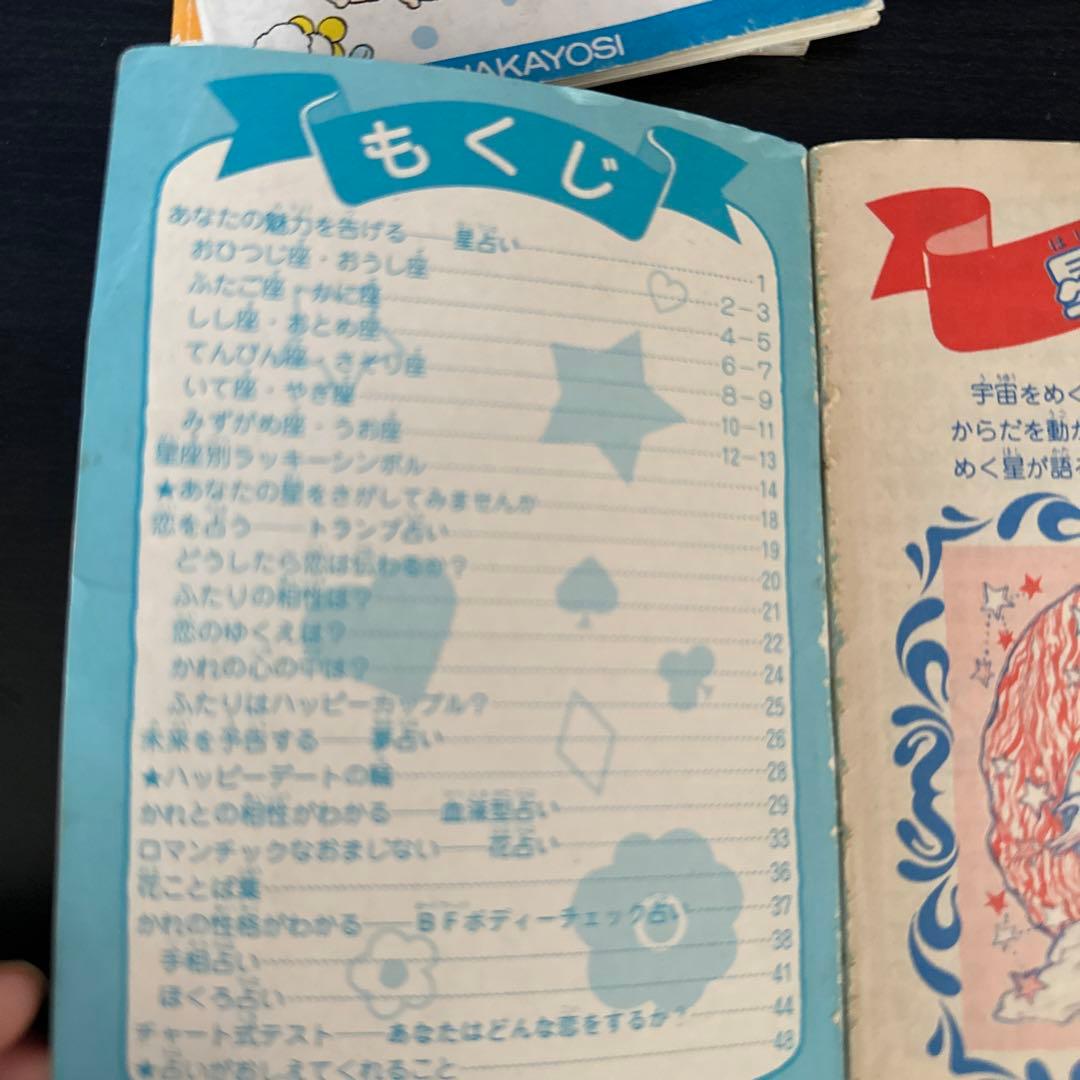 NAKAYOSI
もくじ
あなたの魅力を告げる──星占い 1
おひつじ座・おうし座 2－3
ふたご座・かに座 4－5
しし座・おとめ座 6－7
てんびん座・さそり座 8－9
いて座・やぎ座 10－11
みずがめ座・うお座 12－13
星座別ラッキーシンボル 14
★あなたの星をさがしてみませんか 18
恋を占う──トランプ占い 19
どうしたら恋は伝わるか？ 20
ふたりの相性は？ 21
恋のゆくえは？ 22
かれの心の中は？ 24
ふたりはハッピーカップル？ 25
未来を予告する──夢占い 26
★ハッピーデートの輪 28
かれとの相性がわかる──血液型占い 29
ロマンチックなおまじない──花占い 33
花ことば集 36
かれの性格がわかる──BFボディーチェック占い 37
手相占い 38
ほくろ占い 41
チャート式テスト──あなたはどんな恋をするか？ 44
★占いがおしえてくれること 48
宇宙をめく
からだを動か
めく星が語